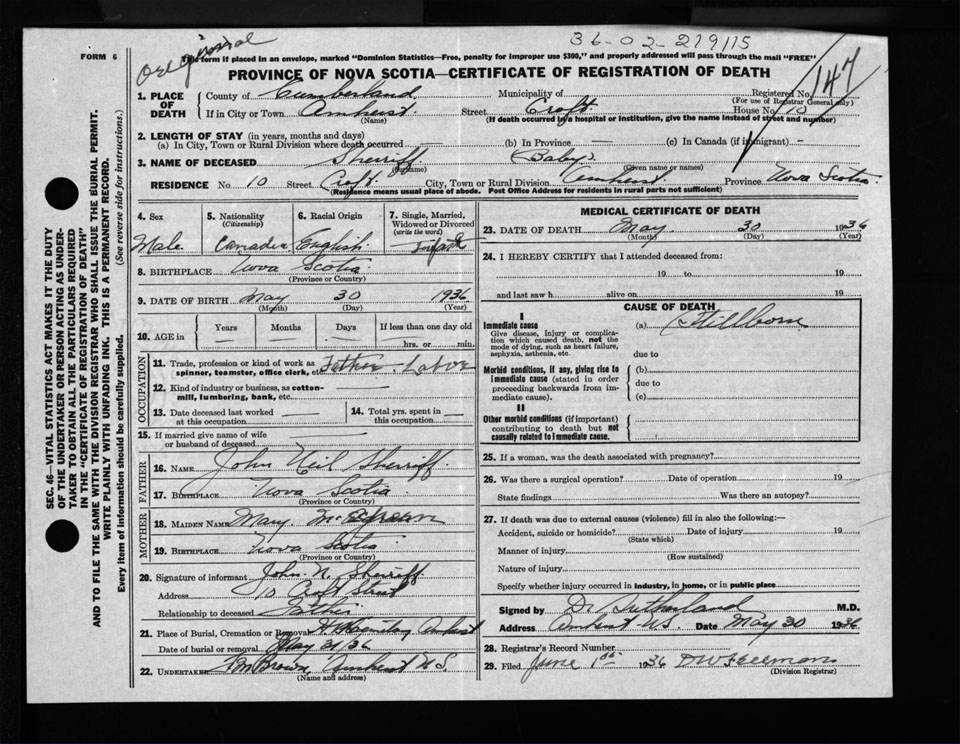 36-02-219115
original
FORM 6
This form if placed in an envelope, marked "Dominion Statistics—Free, penalty for improper use $300," and properly addressed will pass through the mail "FREE"
PROVINCE OF NOVA SCOTIA—CERTIFICATE OF REGISTRATION OF DEATH
147
1. PLACE OF DEATH
County of Cumberland Municipality of Registered No.
(For use of Registrar General only)
If in City or Town Amherst Street Croft House No. 10
(Name) (If death occurred in a hospital or institution, give the name instead of street and number)
2. LENGTH OF STAY (in years, months and days)
(a) In City, Town or Rural Division where death occurred — (b) In Province — (c) In Canada (if immigrant) —
3. NAME OF DECEASED Sherriff (Baby)
(Surname) (Given name or names)
RESIDENCE No. 10 Street Croft City, Town or Rural Division Amherst Province Nova Scotia
(Residence means usual place of abode. Post Office Address for residents in rural parts not sufficient)
4. Sex Male
5. Nationality (Citizenship) Canadian
6. Racial Origin English
7. Single, Married, Widowed or Divorced (write the word) Infant
8. BIRTHPLACE Nova Scotia
(Province or Country)
9. DATE OF BIRTH May 30 1936
(Month) (Day) (Year)
10. AGE in Years Months Days If less than one day old
— — — hrs. or min.
OCCUPATION
11. Trade, profession or kind of work as spinner, teamster, office clerk, etc. Father. Labor
12. Kind of industry or business, as cotton-mill, lumbering, bank, etc. —
13. Date deceased last worked at this occupation —
14. Total yrs. spent in this occupation —
15. If married give name of wife or husband of deceased —
FATHER
16. NAME John Neil Sherriff
17. BIRTHPLACE Nova Scotia
(Province or Country)
MOTHER
18. MAIDEN NAME Mary
19. BIRTHPLACE Nova Scotia
(Province or Country)
20. Signature of informant John N. Sherriff
Address 10 Croft Street
Relationship to deceased Father
21. Place of Burial, Cremation or Removal Amherst
Date of burial or removal May 31/36
22. UNDERTAKER Brown Amherst N.S.
(Name and address)
MEDICAL CERTIFICATE OF DEATH
23. DATE OF DEATH May 30 1936
(Month) (Day) (Year)
24. I HEREBY CERTIFY that I attended deceased from:
19 to 19
and last saw h alive on 19
CAUSE OF DEATH
I
Immediate cause (a) Stillborn
Give disease, injury or complication which caused death, not the mode of dying, such as heart failure, asphyxia, asthenia, etc.
due to
Morbid conditions, if any, giving rise to immediate cause (stated in order proceeding backwards from immediate cause).
(b)
due to
(c)
II
Other morbid conditions (if important) contributing to death but not causally related to immediate cause.
25. If a woman, was the death associated with pregnancy?
26. Was there a surgical operation? Date of operation 19
State findings Was there an autopsy?
27. If death was due to external causes (violence) fill in also the following:—
Accident, suicide or homicide? Date of injury 19
(State which)
Manner of injury
(How sustained)
Nature of injury
Specify whether injury occurred in industry, in home, or in public place
Signed by Dr Sutherland M.D.
Address Amherst N.S. Date May 30 1936
28. Registrar's Record Number
29. Filed June 1st 1936 D W Freeman
(Division Registrar)
SEC. 46—VITAL STATISTICS ACT MAKES IT THE DUTY
OF THE UNDERTAKER OR PERSON ACTING AS UNDER-
TAKER TO OBTAIN ALL THE PARTICULARS REQUIRED
IN THE "CERTIFICATE OF REGISTRATION OF DEATH"
AND TO FILE THE SAME WITH THE DIVISION REGISTRAR WHO SHALL ISSUE THE BURIAL PERMIT.
WRITE PLAINLY WITH UNFADING INK. THIS IS A PERMANENT RECORD.
Every item of information should be carefully supplied. (See reverse side for instructions.)